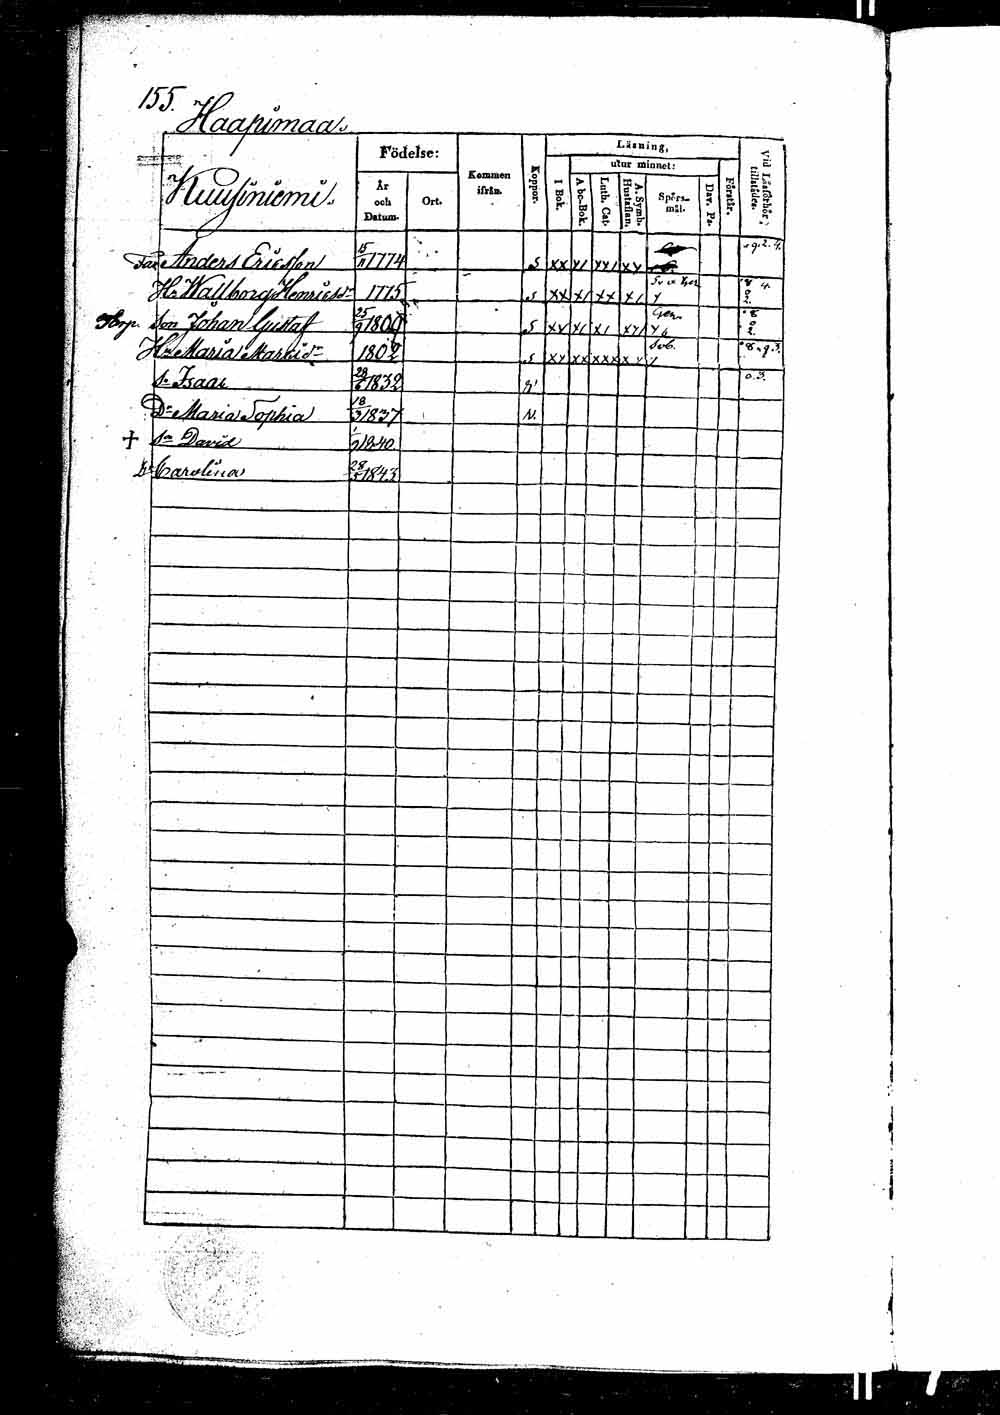 155.
Haapimaa.
Kuusiniemi.
Födelse:
År och Datum.
Ort.
Kommen ifrån.
Koppor.
Läsning,
utur minnet:
I Bok.
A bc-Bok.
Luth. Cat.
A. Symb. Hustaflan.
Spörs-mål.
Dav. Ps.
Förstår.
Vid Läsförhör tillstädes.
Far Anders Ericsson 15/11 1774 S xx x1 xx1 xy
Hu Wallborg Henricsdr 1775 S xx x1 xx x1
Torp. Son Johan Gustaf 25/9 1800 S xx x1 x1
Hu Maria Markusdr 1802 S xx xxx
Sn Isaac 28/6 1832 o.3.
Dr Maria Sophia 18/3 1837 N.
† Sn David 1840
Dr Carolina 28/5 1843